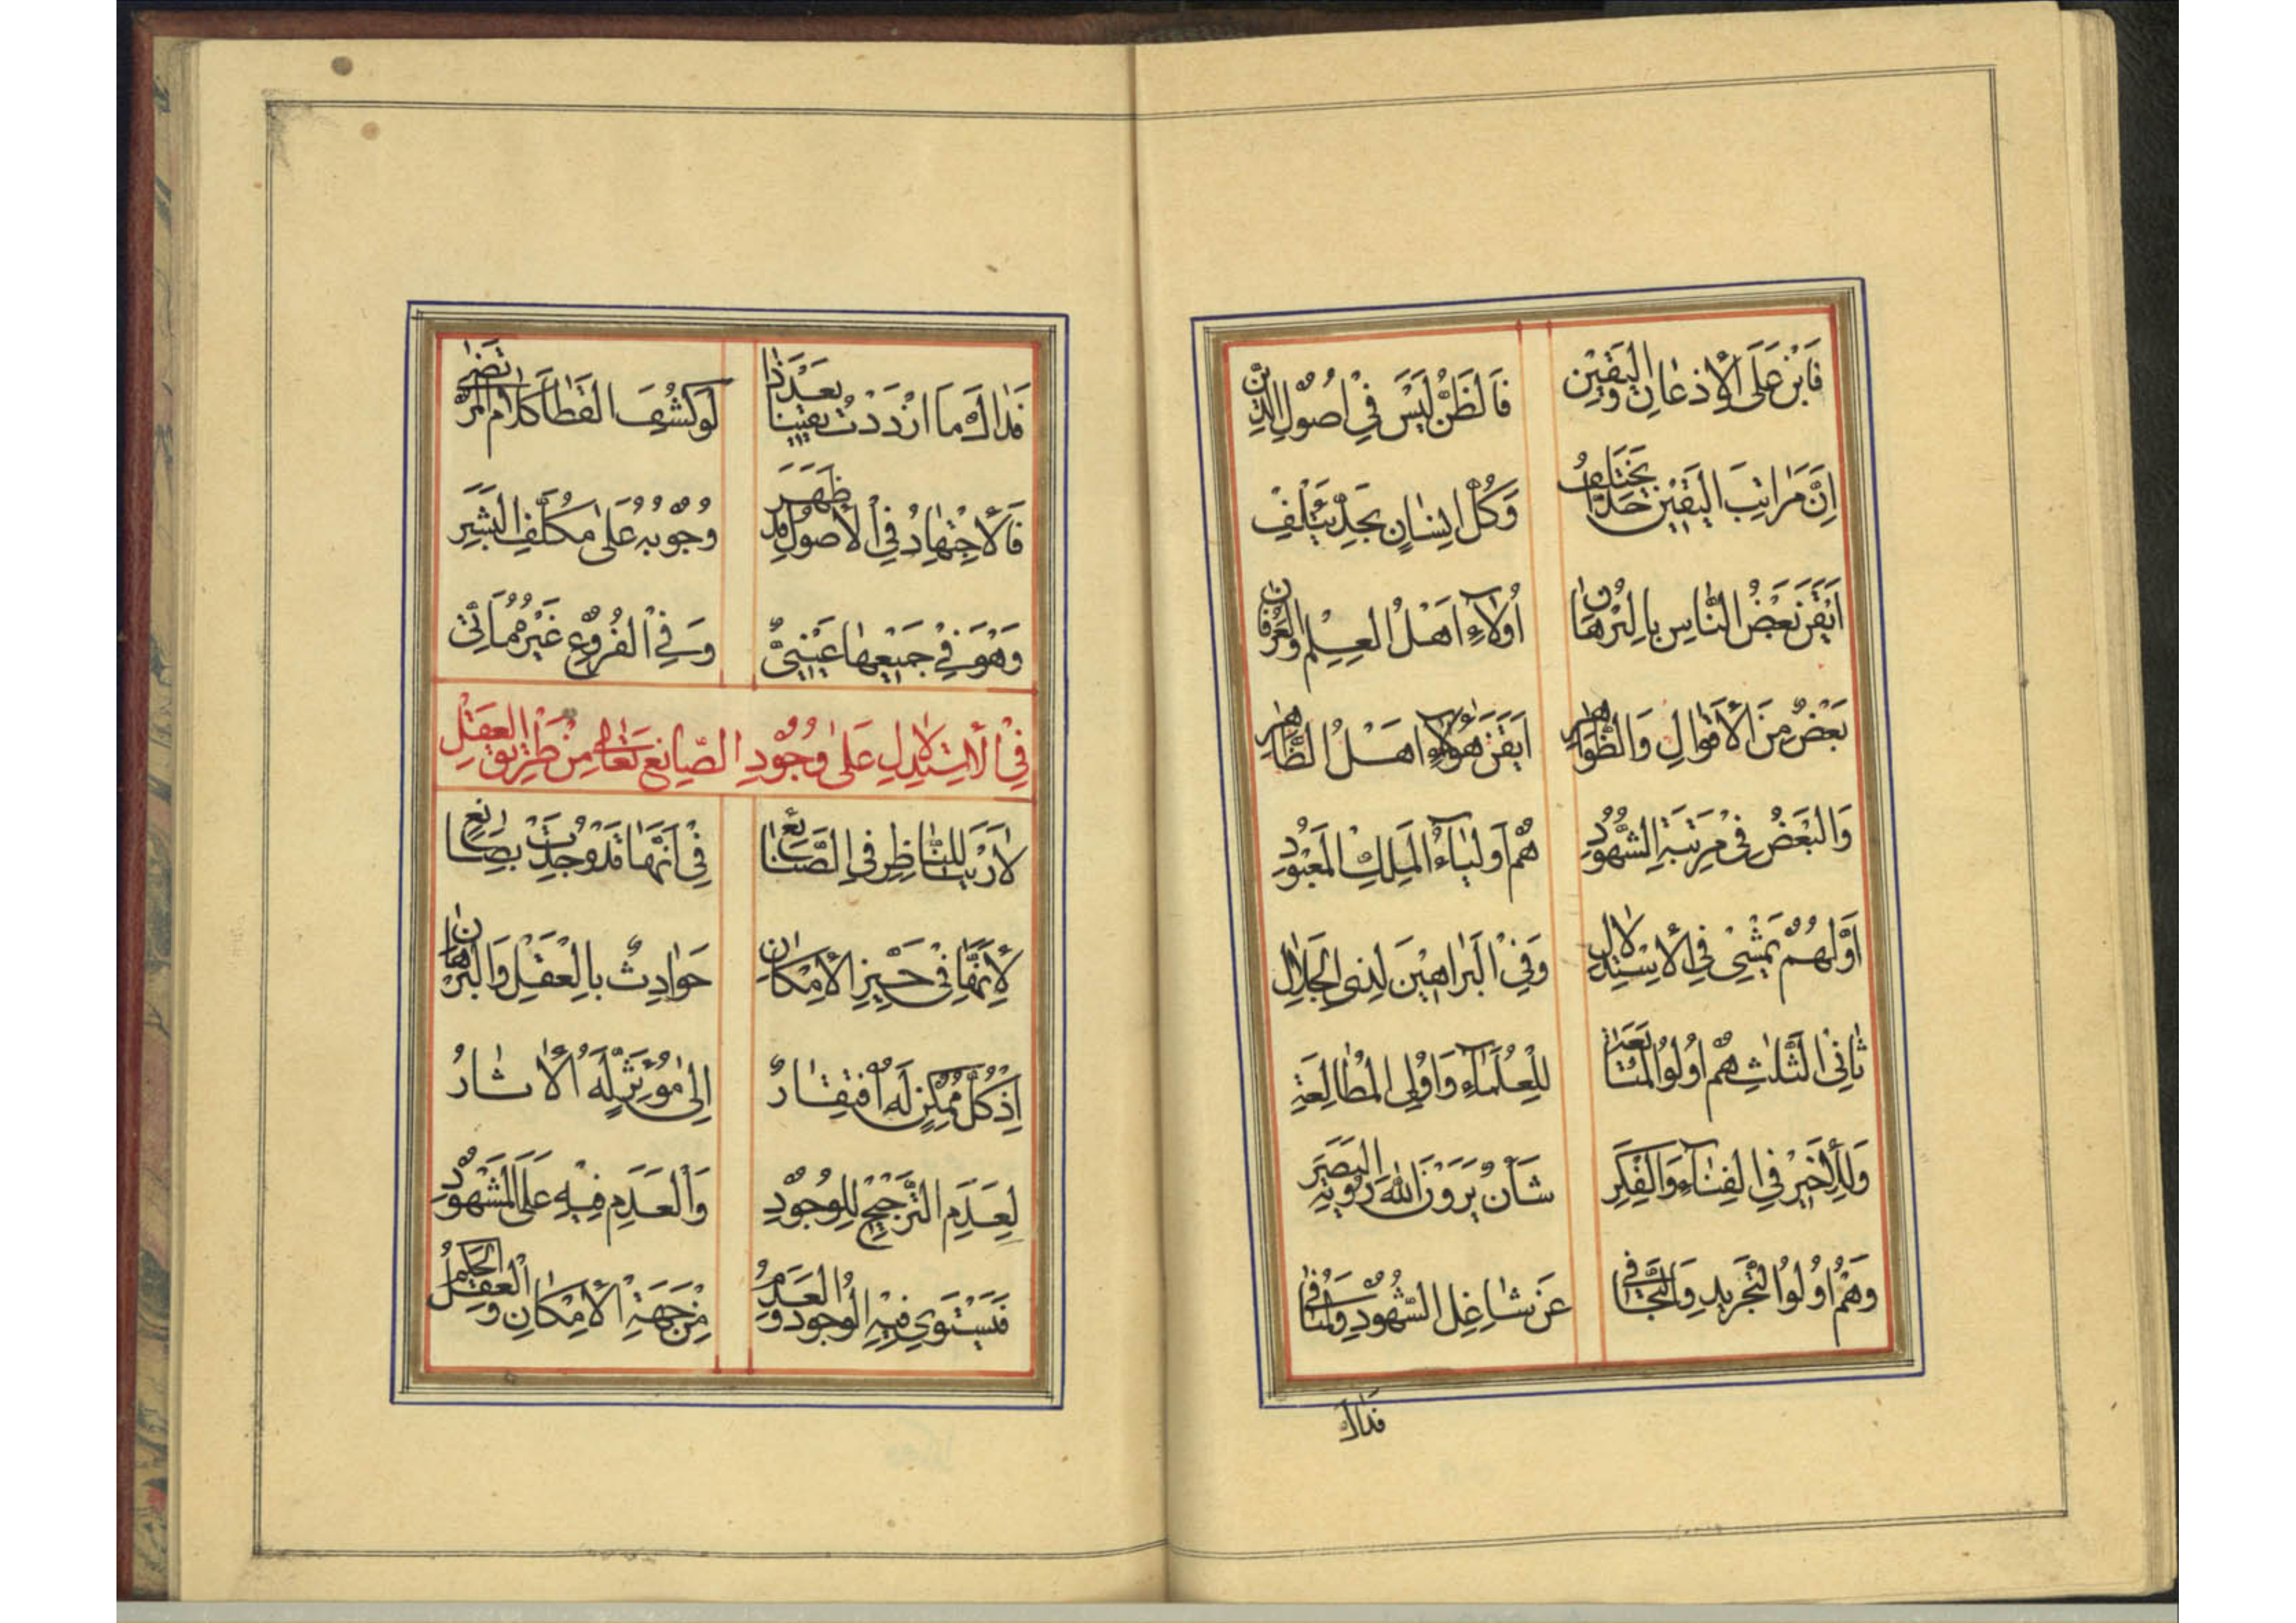 فَابْنِ عَلَى الْأِذعَانِ وَالْيَقِيْنِ فَالظَّنُّ لَيْسَ فِيْ اُصُوْلِ الدِّيْنِ
اِنَّ مَرَاتِبَ الْيَقِيْنِ يَخْتَلِفُ وَكُلُّ اِنْسَانٍ بِحَدٍّ يَتَّلِفْ
اَيْقَنَ بَعْضُ النَّاسِ بِالْبُرْهَانِ اُولٰآءِ اَهْلُ الْعِلْمِ وَالْعِرْفَانِ
بَعْضٌ مِنَ الْأَقْوَالِ وَالظَّوَاهِرِ اَيْقَنَ هٰؤُلٰآءِ اَهْلُ الظَّاهِرِ
وَالْبَعْضُ فِيْ مَرْتَبَةِ الشُّهُوْدِ هُمْ اَوْلِيَآءُ الْمَلِكِ الْمَعْبُوْدِ
اَوَّلُهُمْ يَمْشِيْ فِي الْأِسْتِدْلَالِ وَفِيْ الْبَرَاهِيْنِ لِذِي الْجَلَالِ
ثَانِى الثَّلٰثِ هُمْ اُولُوا الْمُتَابَعَة لِلْعُلَمَآءِ وَاُولِى الْمُطَالَعَةِ
وَلِلْأَخِيْرِ فِي الْفَنَآءِ وَالْفِكَرِ شَأْنٌ يَرَوْنَ اللّٰهَ رُؤْيَةَ الْبَصَرِ
وَهُمْ اُولُوا التَّجْرِيدِ وَالتَّجَافِيْ عَنْ شَاغِلِ الشُّهُوْدِ وَالْمُنَافِيْ
فَذَاكَ
فَذَاكَ مَا ازْدَدْتُ يَقِيْنًا بَعْدَ ذَا لَوْ كُشِفَ الْغَطَا كَلَامُ الْمُرْتَضٰى
فَالْأِجْتِهَادُ فِي الْأُصُوْلِ قَدْ ظَهَرَ وُجُوْبُهُ عَلَى مُكَلَّفِ الْبَشَرِ
وَهْوَ فِيْ جَمِيْعِهَا عَيْنِيٌّ وَفِيْ الْفُرُوْعِ غَيْرُ
فِيْ الْأِسْتِدْلَالِ عَلٰى وُجُوْدِ الصَّانِعِ تَعَالٰى مِنْ طَرِيْقِ الْعَقْلِ
لَا رَيْبَ لِلنَّاظِرِ فِي الصَّنَائِعِ فِي اَنَّهَا قَدْ وُجِدَتْ بِصَانِعٍ
لِأَنَّهَا فِيْ حَيِّزِ الْأِمْكَانِ حَوَادِثٌ بِالْعَقْلِ وَالْبُرْهَانِ
اِذْ كُلُّ مُمْكِنٍ لَهُ افْتِقَارٌ اِلٰى مُؤَثِّرٍ لَهُ الْأٰثَارُ
لِعَدَمِ التَّرْجِيْحِ لِلْوُجُوْدِ وَالْعَدَمِ فِيْهِ عَلَى الْمَشْهُوْدِ
فَيَسْتَوِي فِيْهِ الْوُجُودُ وَالْعَدَمُ مِنْ جِهَةِ الْأِمْكَانِ وَالْعَقْلُ الْحَكَمُ